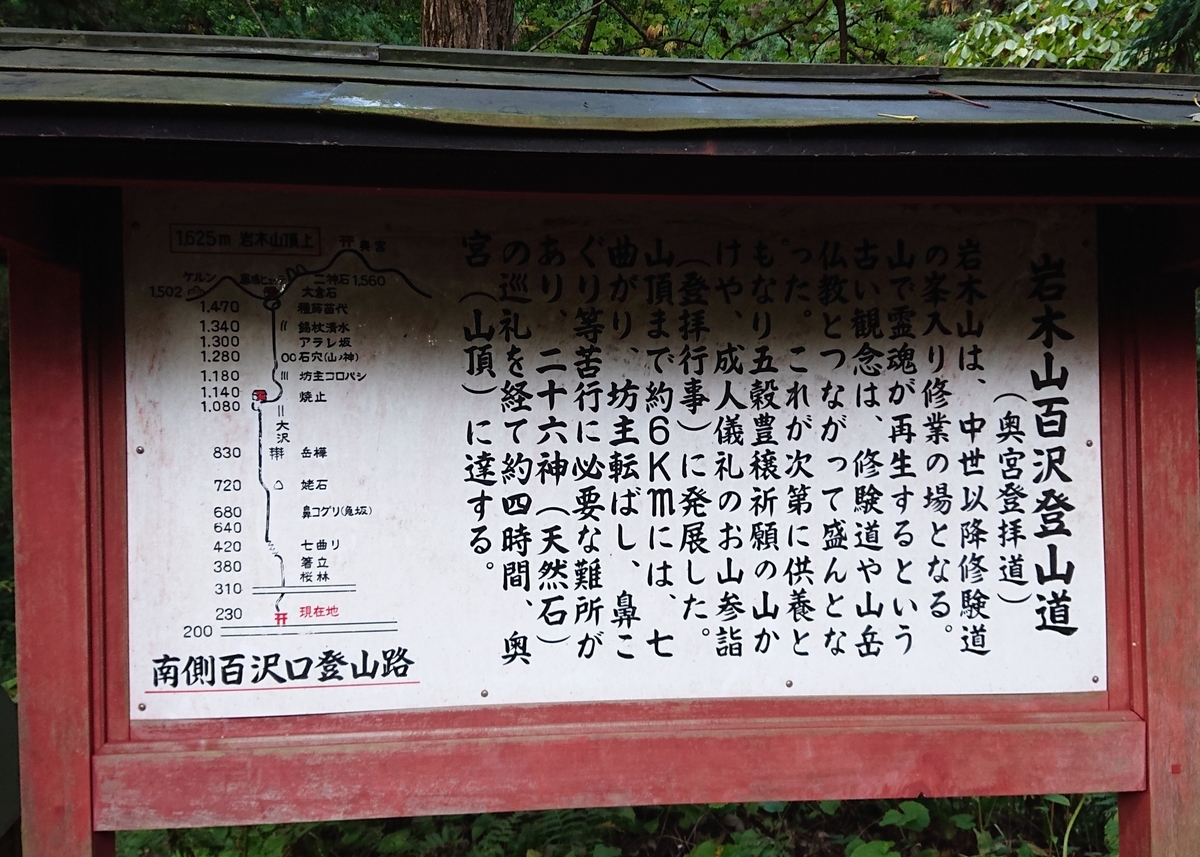 岩木山百沢登山道
（奥宮登拝道）
岩木山は、中世以降修験道
の峯入り修業の場となる。
山で霊魂が再生するという
古い観念は、修験道や山岳
仏教とつながって盛んとな
った。これが次第に供養と
もなり五穀豊穣祈願の山か
けや、成人儀礼のお山参詣
（登拝行事）に発展した。
山頂まで約６Ｋｍには、七
曲がり、坊主転ばし、鼻こ
ぐり等苦行に必要な難所が
あり、二十六神（天然石）
の巡礼を経て約四時間、奥
宮（山頂）に達する。
1,625m 岩木山頂上
奥宮
二神石 1,560
ケルン
1,502
大倉石
1,470 種蒔苗代
1,340 錫杖清水
1,300 アラレ坂
1,280 石穴(山ノ神)
1,180 坊主コロバシ
1,140 焼止
1,080
大沢
830 岳樺
720 姥石
680 鼻コグリ(急坂)
640
420 七曲り
380 箸立
桜林
310
230 現在地
200
南側百沢口登山路